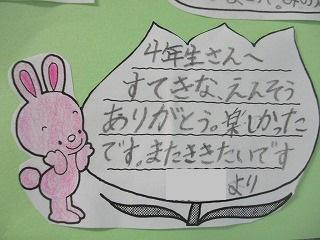 4年生さんへ
すてきな、えんそう
ありがとう。楽しかった
です。またききたいです
より